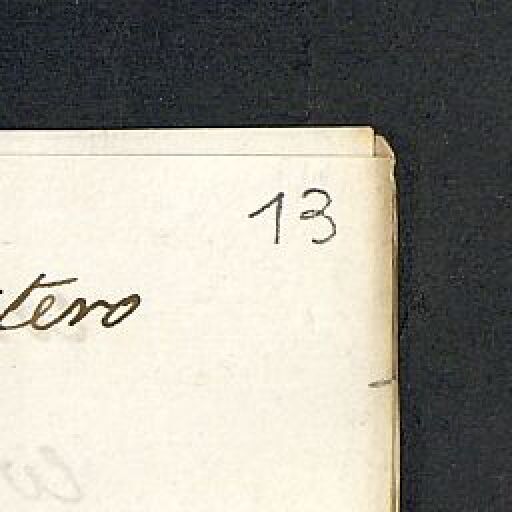 13
tero